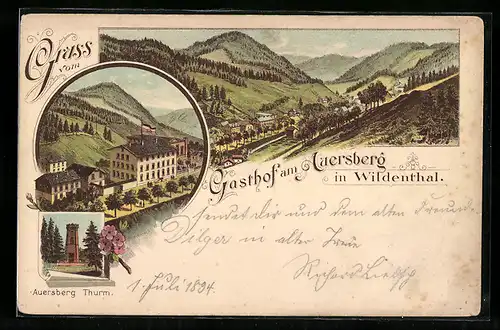 Gruss
vom
Gasthof am Auersberg
in Wildenthal.
sendet Dir und dem alten Freunde
Dilger in alter Treue
Richard Liebig
1. Juli 1894
Auersberg Thurm.